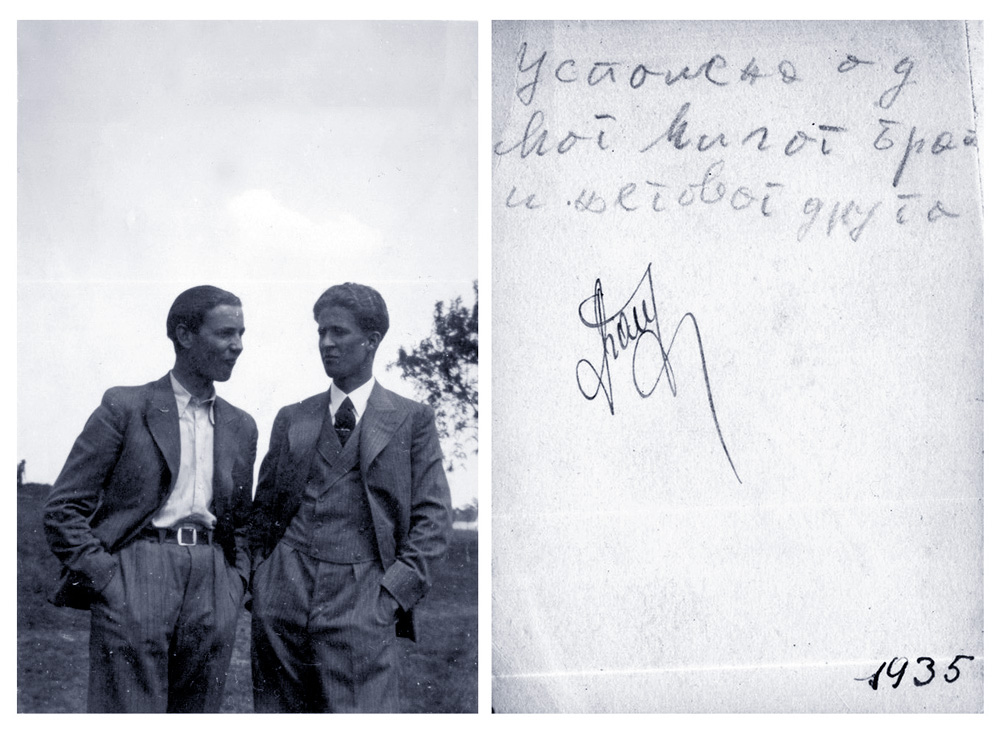 Успомена од
мог милог
и његовог друга
1935